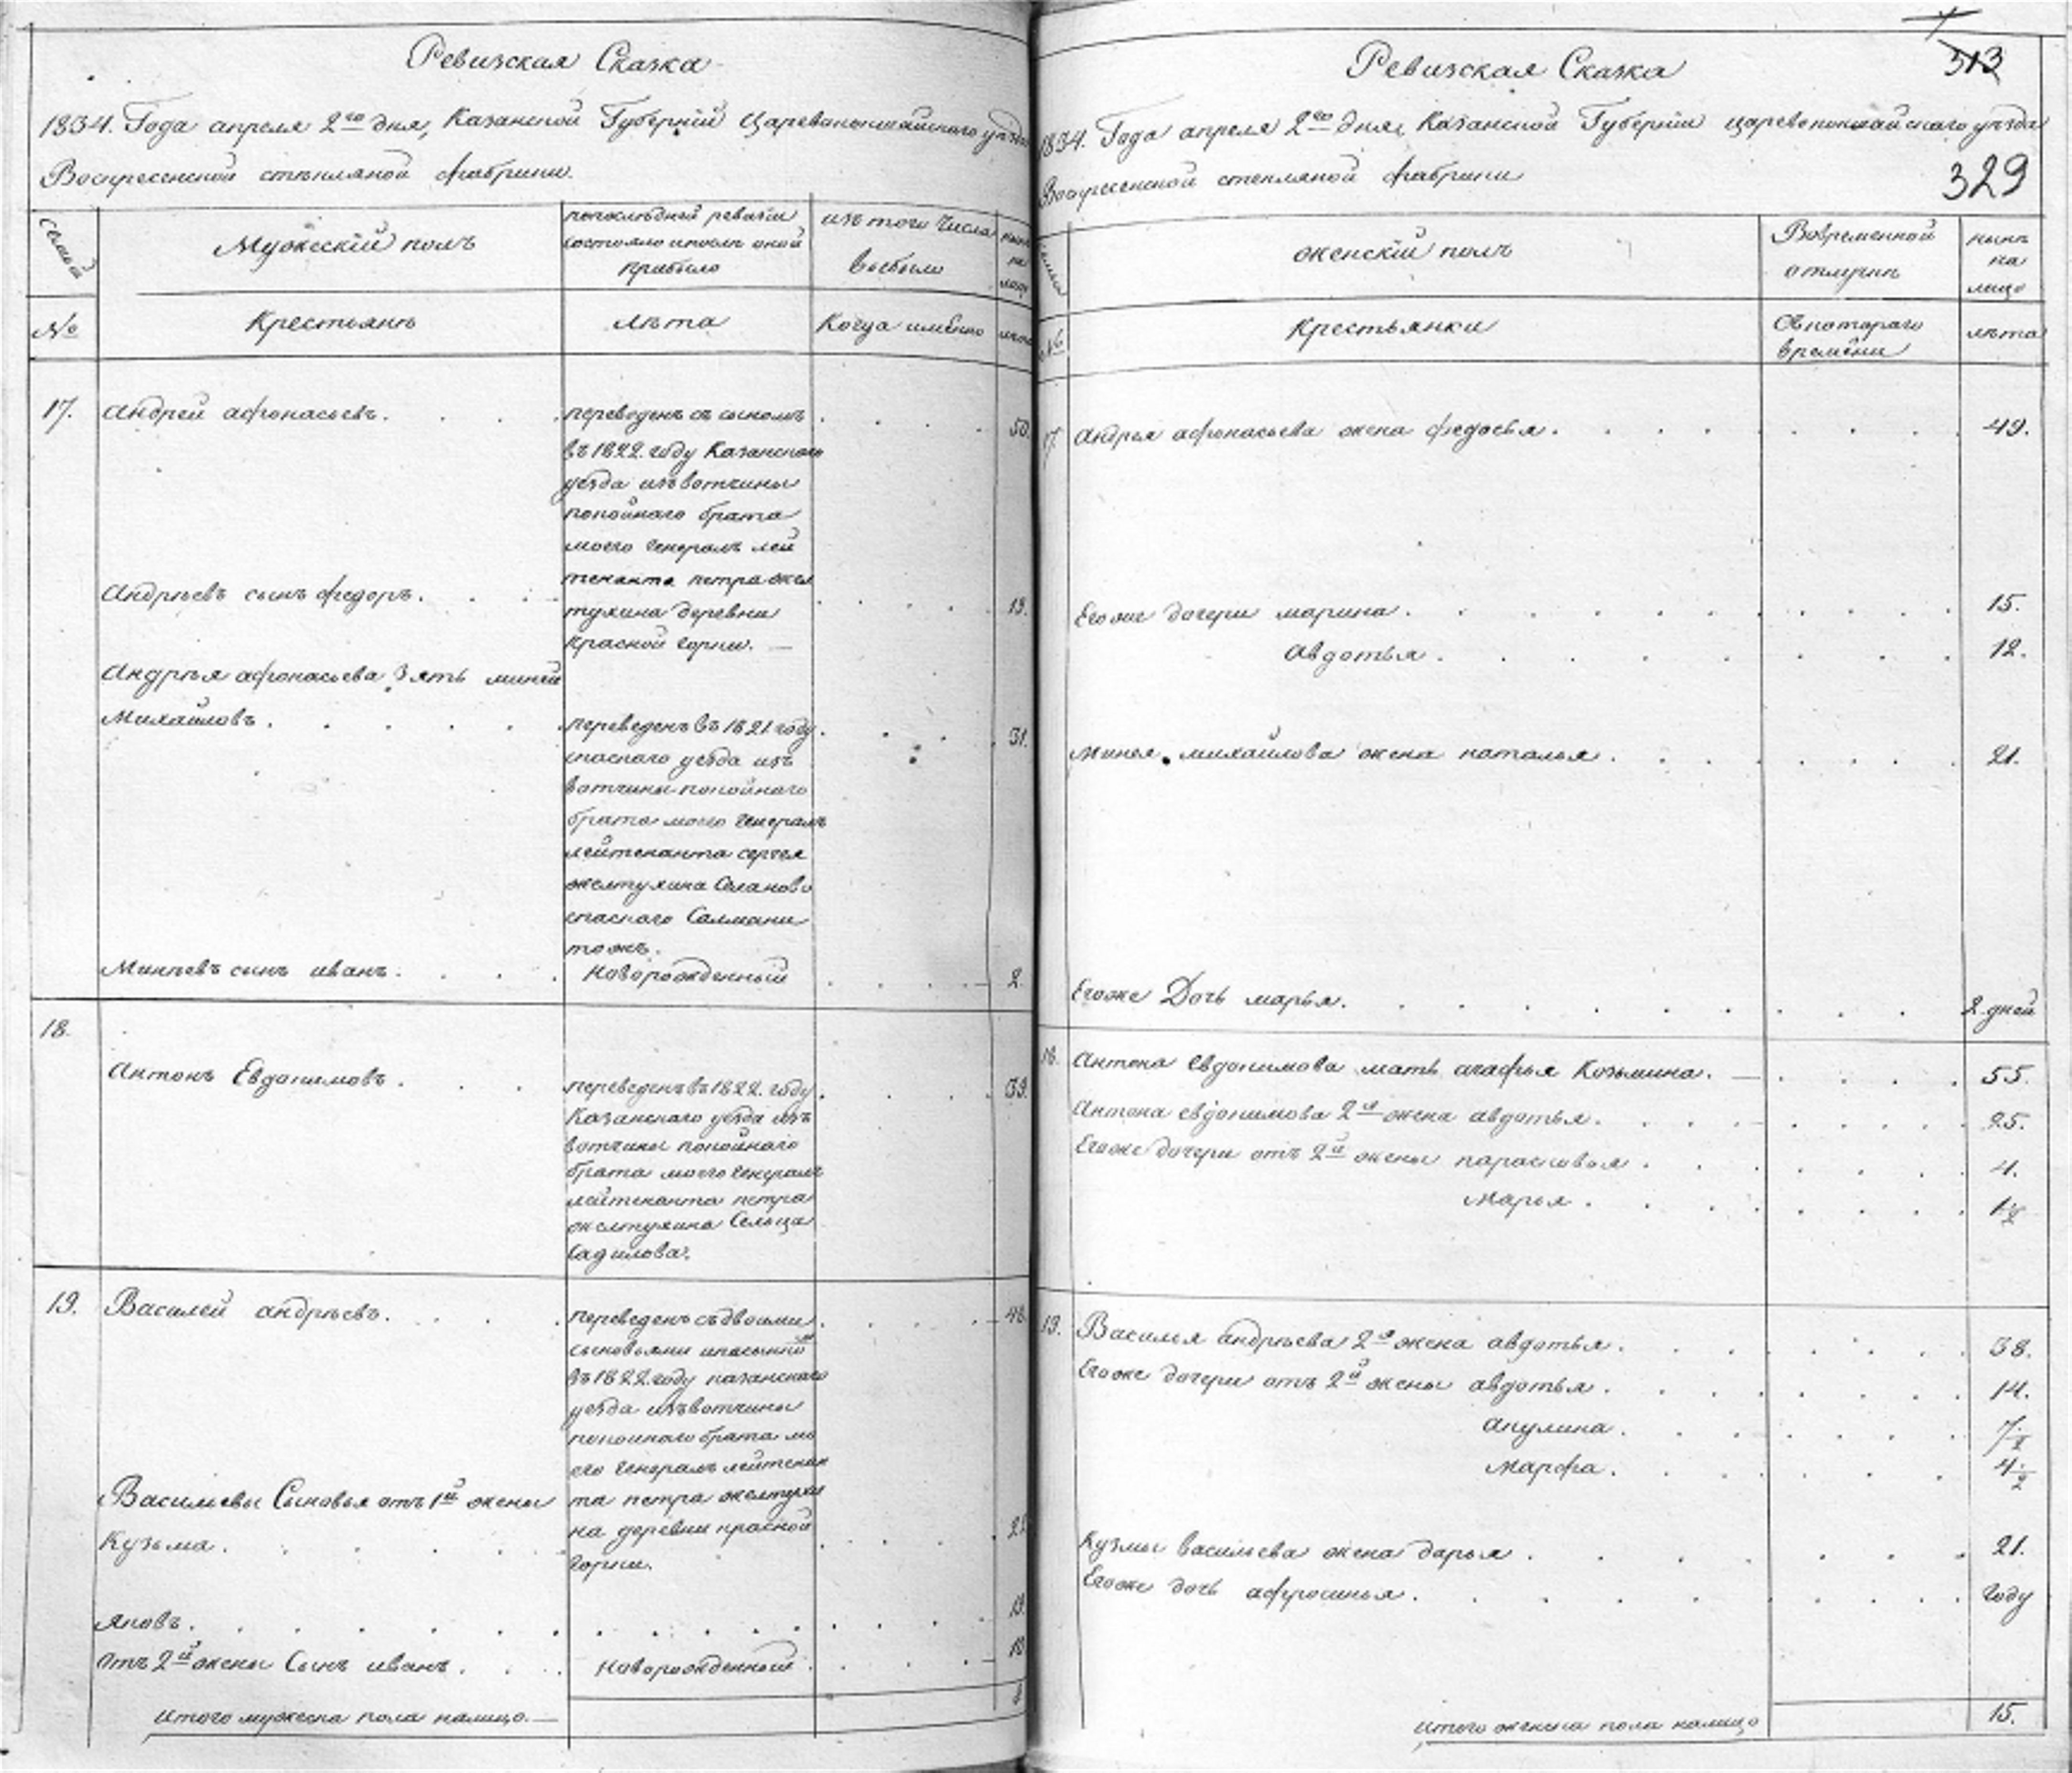 Ревизская Сказка
1834. Года апреля 2го дня, Казанской Губернiи Царевококшайского уезда
Воскресенской стекляной фабрики.
семей
Мужескiй полъ
последней ревизiи
состояло и после оной
прибыло
изъ того числа
выбыло
ныне
на
лицо
№
Крестьяне
лета
Когда имянно
лета
17. Андрей афонасьевъ. переведенъ съ сыномъ 50.
въ 1822. году Казанского
уезда изъ вотчины
покойнаго брата
моего Генералъ лей
тенанта петра жел
Андреевъ сынъ федоръ. тухина деревни 19.
Красной горки.
Андрея афонасьева зять миней
Михайловъ. переведенъ въ 1821 году 31.
спаского уезда изъ
вотчины покойнаго
брата моего Генералъ
лейтенанта сергея
желтухина
спаского Салмани
тожъ.
Минеевъ сынъ иванъ. новорожденный 2.
18.
Антонъ Евдокимовъ. переведенъ въ 1822. году 39.
Казанского уезда изъ
вотчины покойнаго
брата моего Генералъ
лейтенанта петра
желтухина Сельца
Садилова.
19. Василей андреевъ. переведенъ съ двоими 46.
сыновьями
въ 1822. году казанского
уезда изъ вотчины
покойнаго брата мо
его Генералъ лейтенан
Васильевы Сыновья отъ 1й жены та петра желтухи
на деревни красной
Кузьма. горки.
яковъ. 19.
отъ 2й жены Сынъ иванъ. новорожденный. 10
итого мужеска пола налицо.
Ревизская Сказка
313
1834. Года апреля 2го дня, Казанской Губернiи царевококшайскаго уезда
Воскресенской стекляной фабрики
329
женскiй полъ
Во временной
отлучке
ныне
на
лицо
№
Крестьянки
Съ котораго
времени
лета
17. Андрея афонасьева жена федосья. 49.
Егоже дочери марина. 15.
Авдотья. 12.
Минея михайлова жена наталья. 21.
Егоже Дочь марья. 2 дней
18. Антона Евдокимова мать агафья Козьмина. 55.
Антона евдокимова 2я жена авдотья. 25.
Егоже дочери отъ 2й жены парасковья. 4.
Марья. 1½
19. Василья андреева 2я жена авдотья. 38.
Егоже дочери отъ 2й жены авдотья. 14.
акулина. 7½
Марфа. 4½
Кузмы васильева жена дарья. 21.
Егоже дочь афросинья. году
итого женска пола налицо 15.